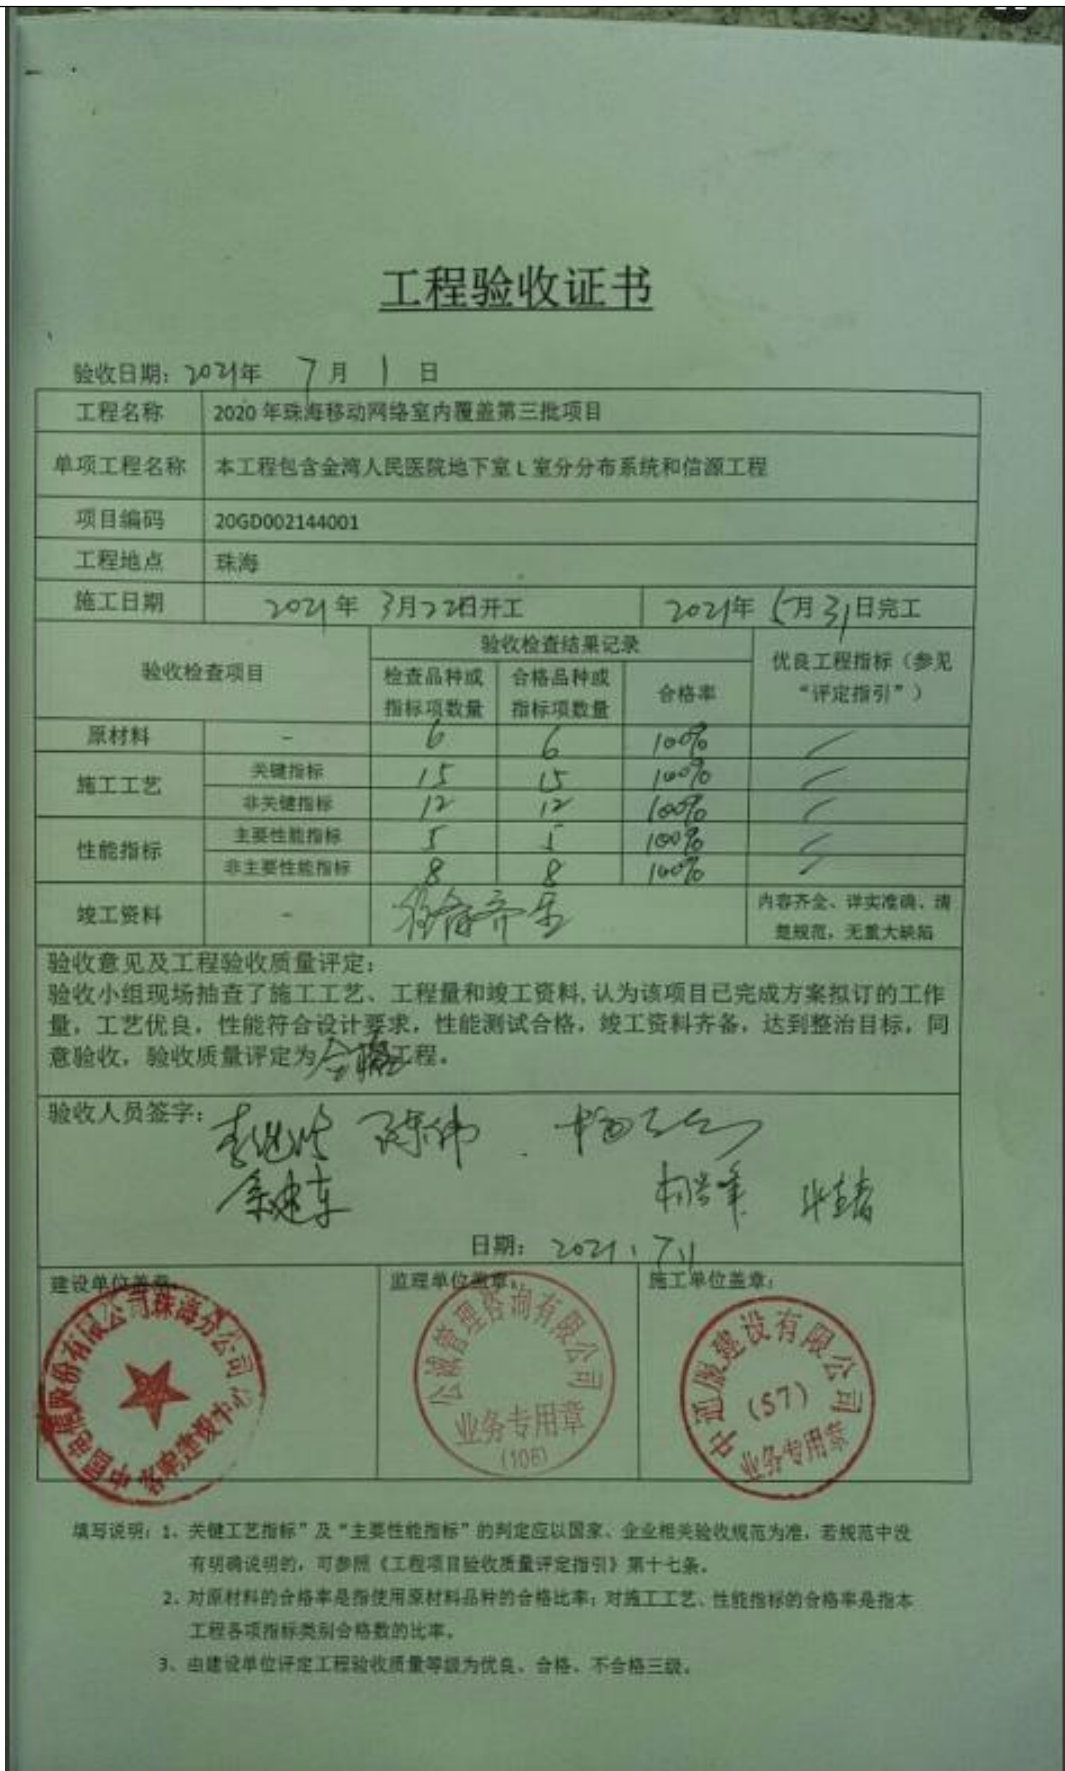 工程验收证书
验收日期：2021年 7月 1 日
工程名称 2020年珠海移动网络室内覆盖第三批项目
单项工程名称 本工程包含金湾人民医院地下室L室分分布系统和信源工程
项目编码 20GD002144001
工程地点 珠海
施工日期 2021年 3月22日开工 2021年 5月31日完工
验收检查项目 验收检查结果记录 优良工程指标（参见“评定指引”）
检查品种或指标项数量 合格品种或指标项数量 合格率
原材料 - 6 6 100%
施工工艺 关键指标 15 15 100%
非关键指标 12 12 100%
性能指标 主要性能指标 5 5 100%
非主要性能指标 8 8 100%
竣工资料 - 齐全 内容齐全、详实准确、清楚规范，无重大缺陷
验收意见及工程验收质量评定：
验收小组现场抽查了施工工艺、工程量和竣工资料,认为该项目已完成方案拟订的工作
量，工艺优良，性能符合设计要求，性能测试合格，竣工资料齐备，达到整治目标，同
意验收，验收质量评定为合格工程。
验收人员签字：
陈伟
余建东
日期： 2021.7.1
建设单位盖章： 监理单位盖章： 施工单位盖章：
中国电信股份有限公司珠海分公司
公诚管理咨询有限公司
业务专用章
(106)
中通服建设有限公司
(57)
业务专用章
填写说明：1、关键工艺指标”及“主要性能指标”的判定应以国家、企业相关验收规范为准，若规范中没
有明确说明的，可参照《工程项目验收质量评定指引》第十七条。
2、对原材料的合格率是指使用原材料品种的合格比率；对施工工艺、性能指标的合格率是指本
工程各项指标类别合格数的比率。
3、由建设单位评定工程验收质量等级为优良、合格、不合格三级。